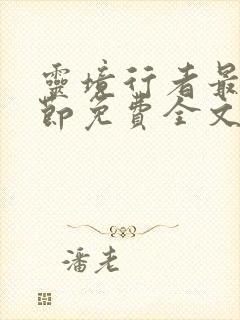 靈境行者最
節免費全文
潘老